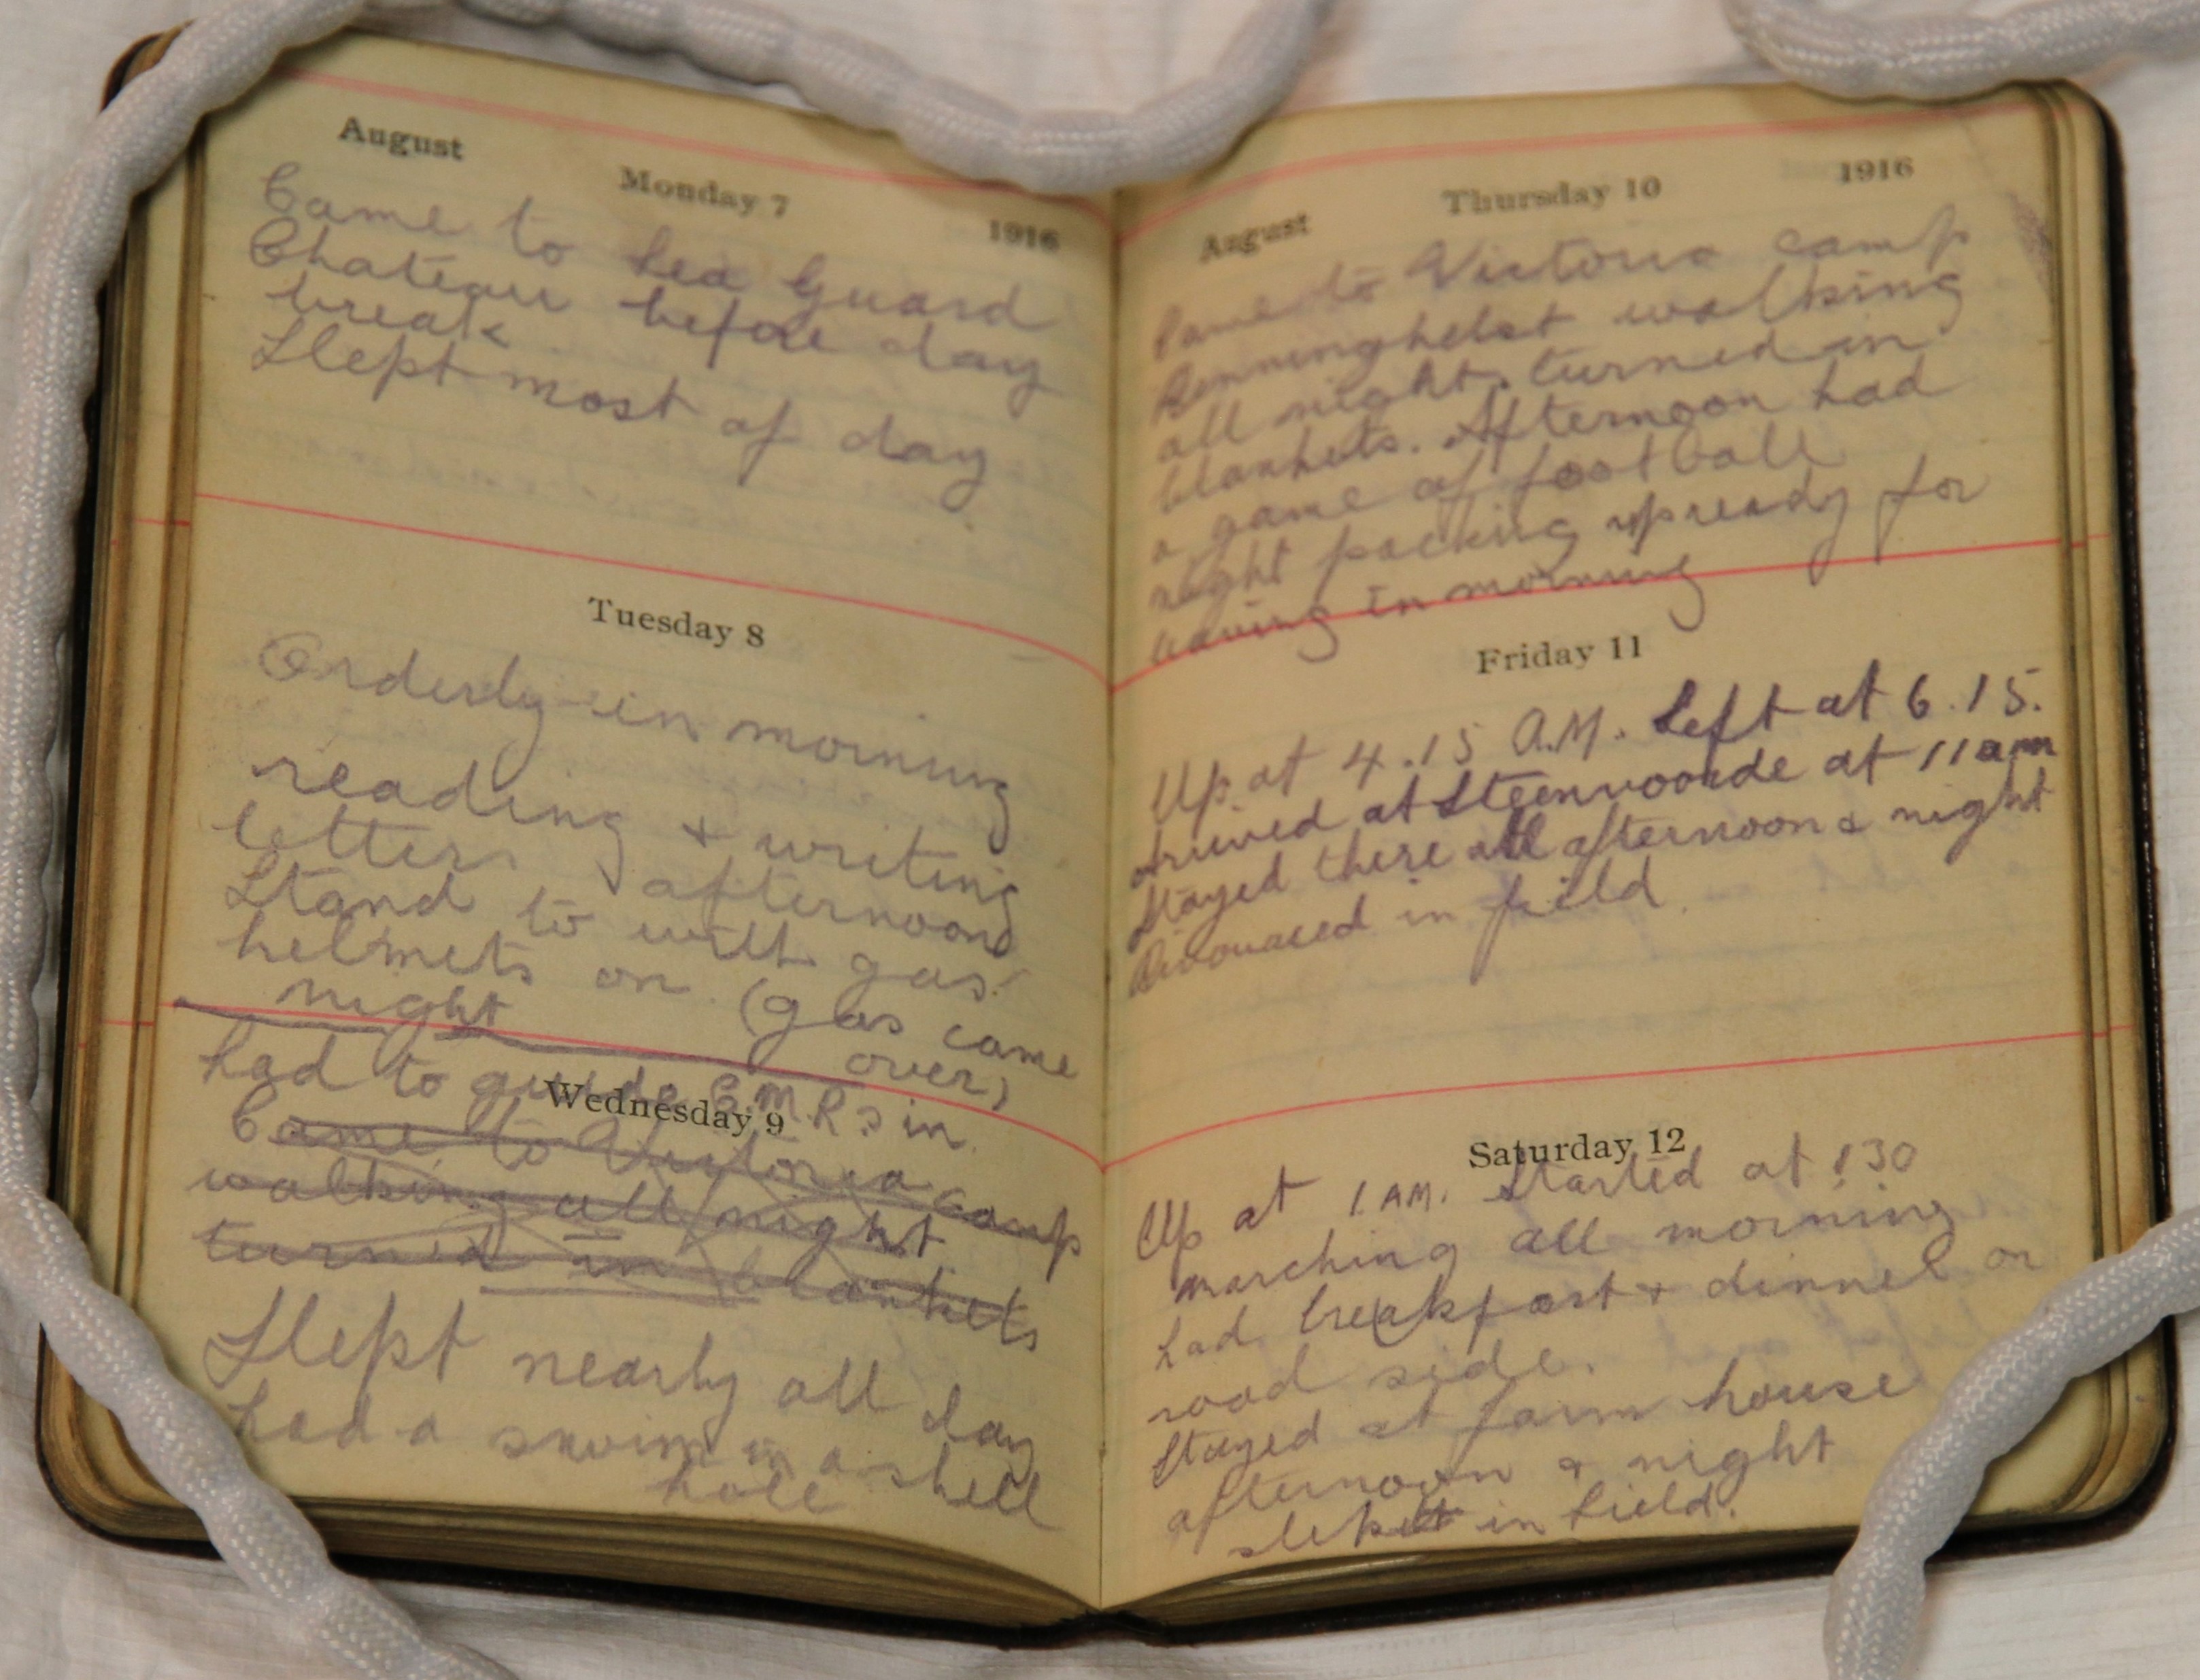 August
Monday 7
1916
Came to Bea Guard
Chateau before day
break
Slept most of day
Tuesday 8
Orderly in morning
reading + writing
letters. afternoon
Stand to with gas
helmets on. (gas came
over)
night
had to guide C.M.R.s in
Wednesday 9
Came to Victoria camp
walking all night
turned in blankets
Slept nearly all day
had a swim in a shell
hole
August
Thursday 10
1916
Came to Victoria camp
Renninghelst walking
all night. turned in
blankets. Afternoon had
a game of football
night packing up ready for
leaving in morning
Friday 11
Up at 4.15 A.M. Left at 6.15.
Arrived at Steenvoorde at 11 am
Stayed there all afternoon & night
Bivouaced in field.
Saturday 12
Up at 1. AM. Started at 1 30
marching all morning
had breakfast + dinner on
road side.
Stayed at farm house
afternoon & night
slept in field.